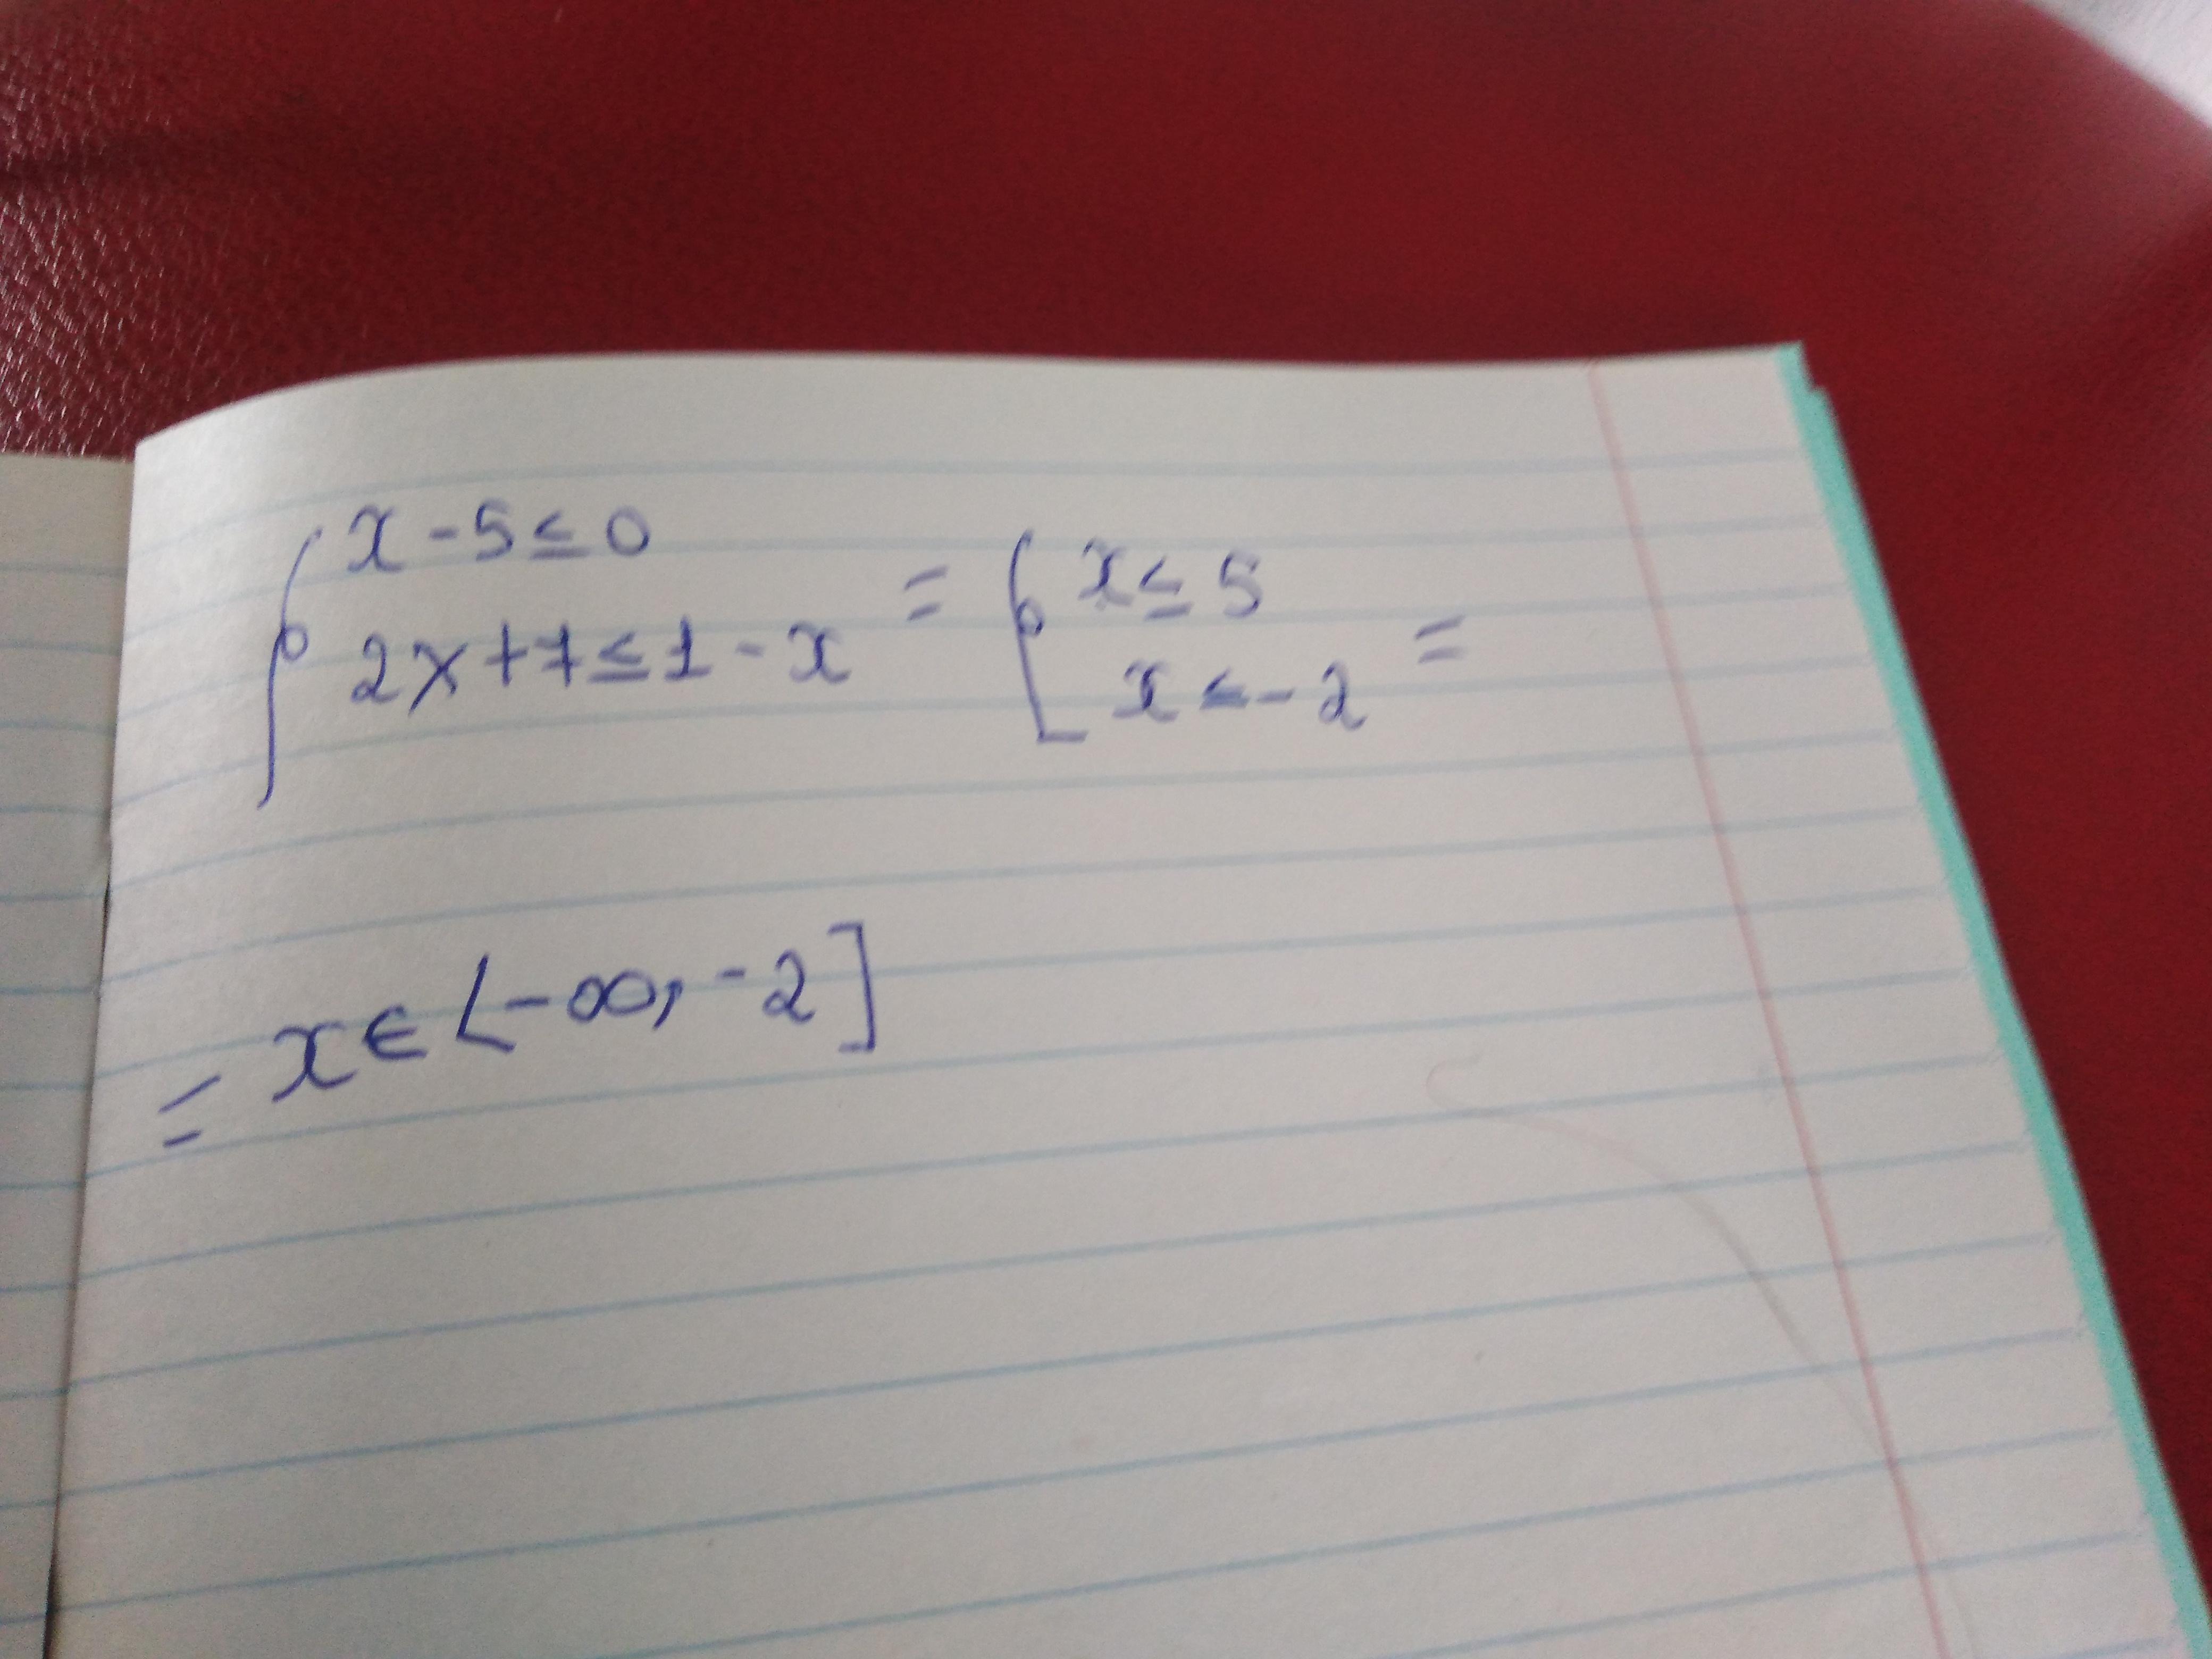 x - 5 ≤ 0
2x + 7 ≤ 1 - x = { x ≤ 5
x ≤ - 2 =
= x ∈ [-∞, -2]